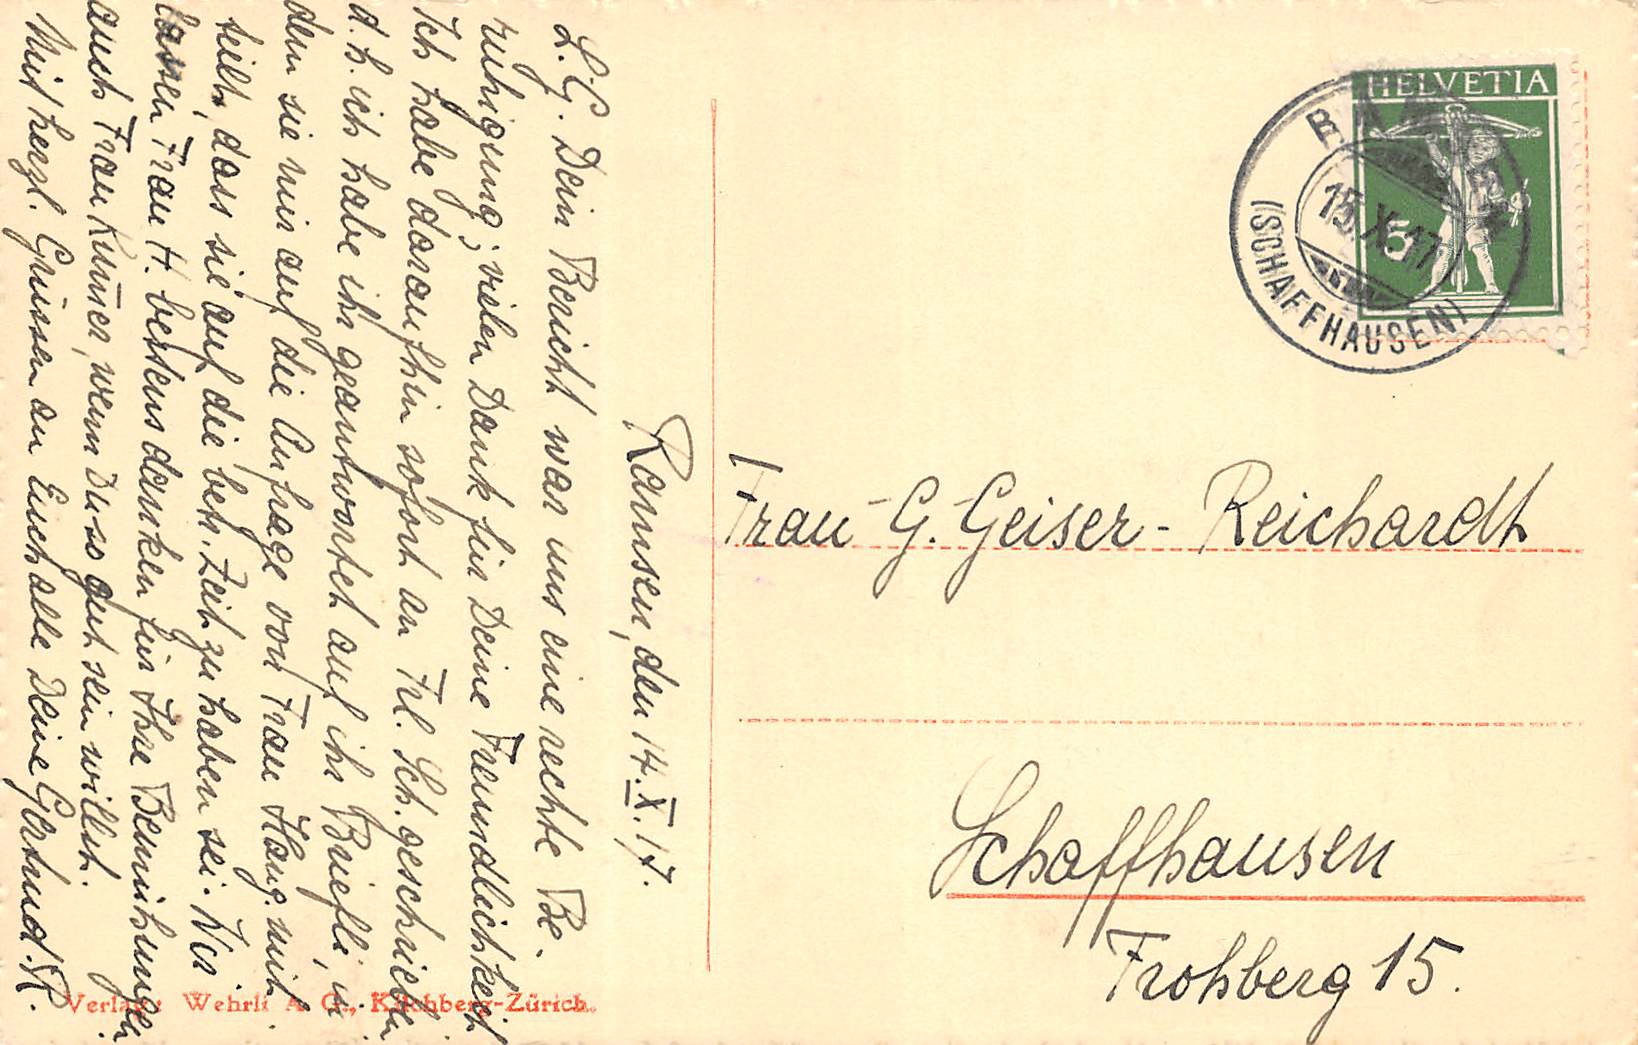 Ramsen, den 14.X.17.
L. G. Dein Bericht war uns eine rechte Be-
ruhigung; vielen Dank für Deine Freundlichkeit
Ich habe daraufhin sofort an Frl. Sch. geschrieben
d.h. ich habe ihr geantwortet auf ihr Briefli, in
dem sie mir auf die Anfrage von Frau Haug mit-
teilt, dass sie auf die betr. Zeit zu haben sei. Wir
lassen Frau H. bestens danken für Ihre Bemühungen
auch Frau Kum̄er, wenn Du so gut sein willst.
Mit herzl. Grüssen an Euch alle Deine Gertrud. R.
HELVETIA
5
15.X.17
(SCHAFFHAUSEN)
Frau G. Geiser-Reichardt
Schaffhausen
Frohberg 15.
Verlag: Wehrli A. G., Kilchberg-Zürich.